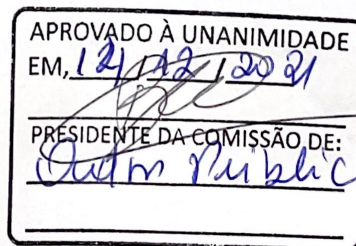 APROVADO À UNANIMIDADE
EM, 12/2021
PRESIDENTE DA COMISSÃO DE:
Public